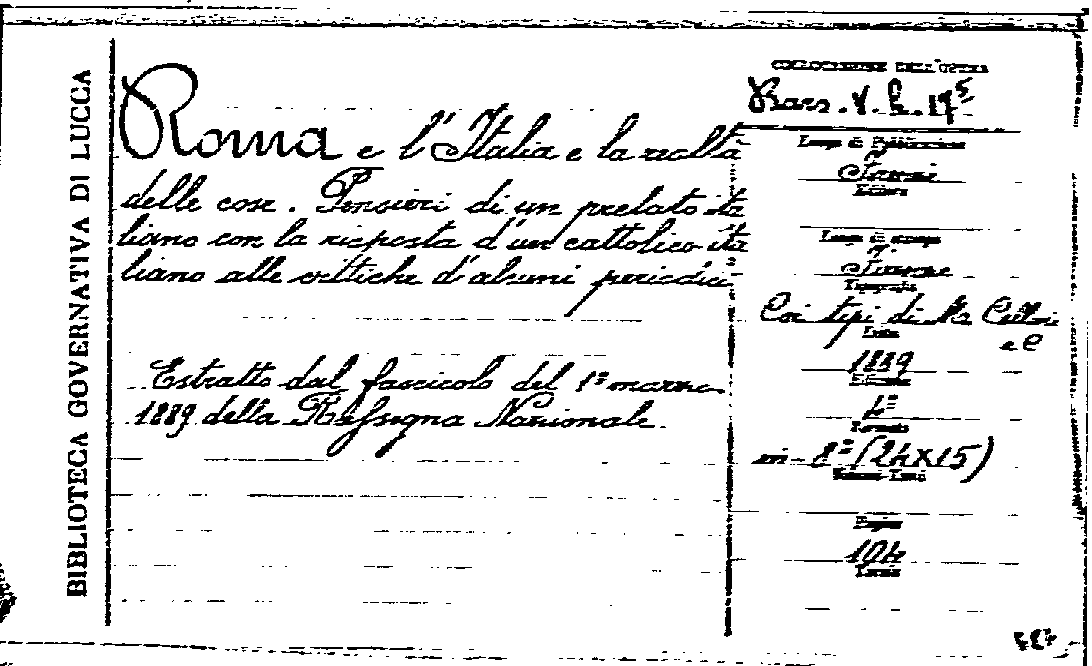 BIBLIOTECA GOVERNATIVA DI LUCCA
Roma e l'Italia e la realtà
delle cose. Pensieri di un prelato ita
liano con la risposta d'un cattolico ita
liano alle critiche d'alcuni periodici
Estratto dal fascicolo del 1º marzo
1889 della Rassegna Nazionale.
COLLOCAZIONE DELL'OPERA
Luogo di Pubblicazione
Firenze
Editore
Luogo di stampa
Firenze
Tipografia
Coi tipi di M. Cellini
e C
Data
1889
Edizione
Formato
in-8º (24x15)
Numero Tomi
Pagine
104